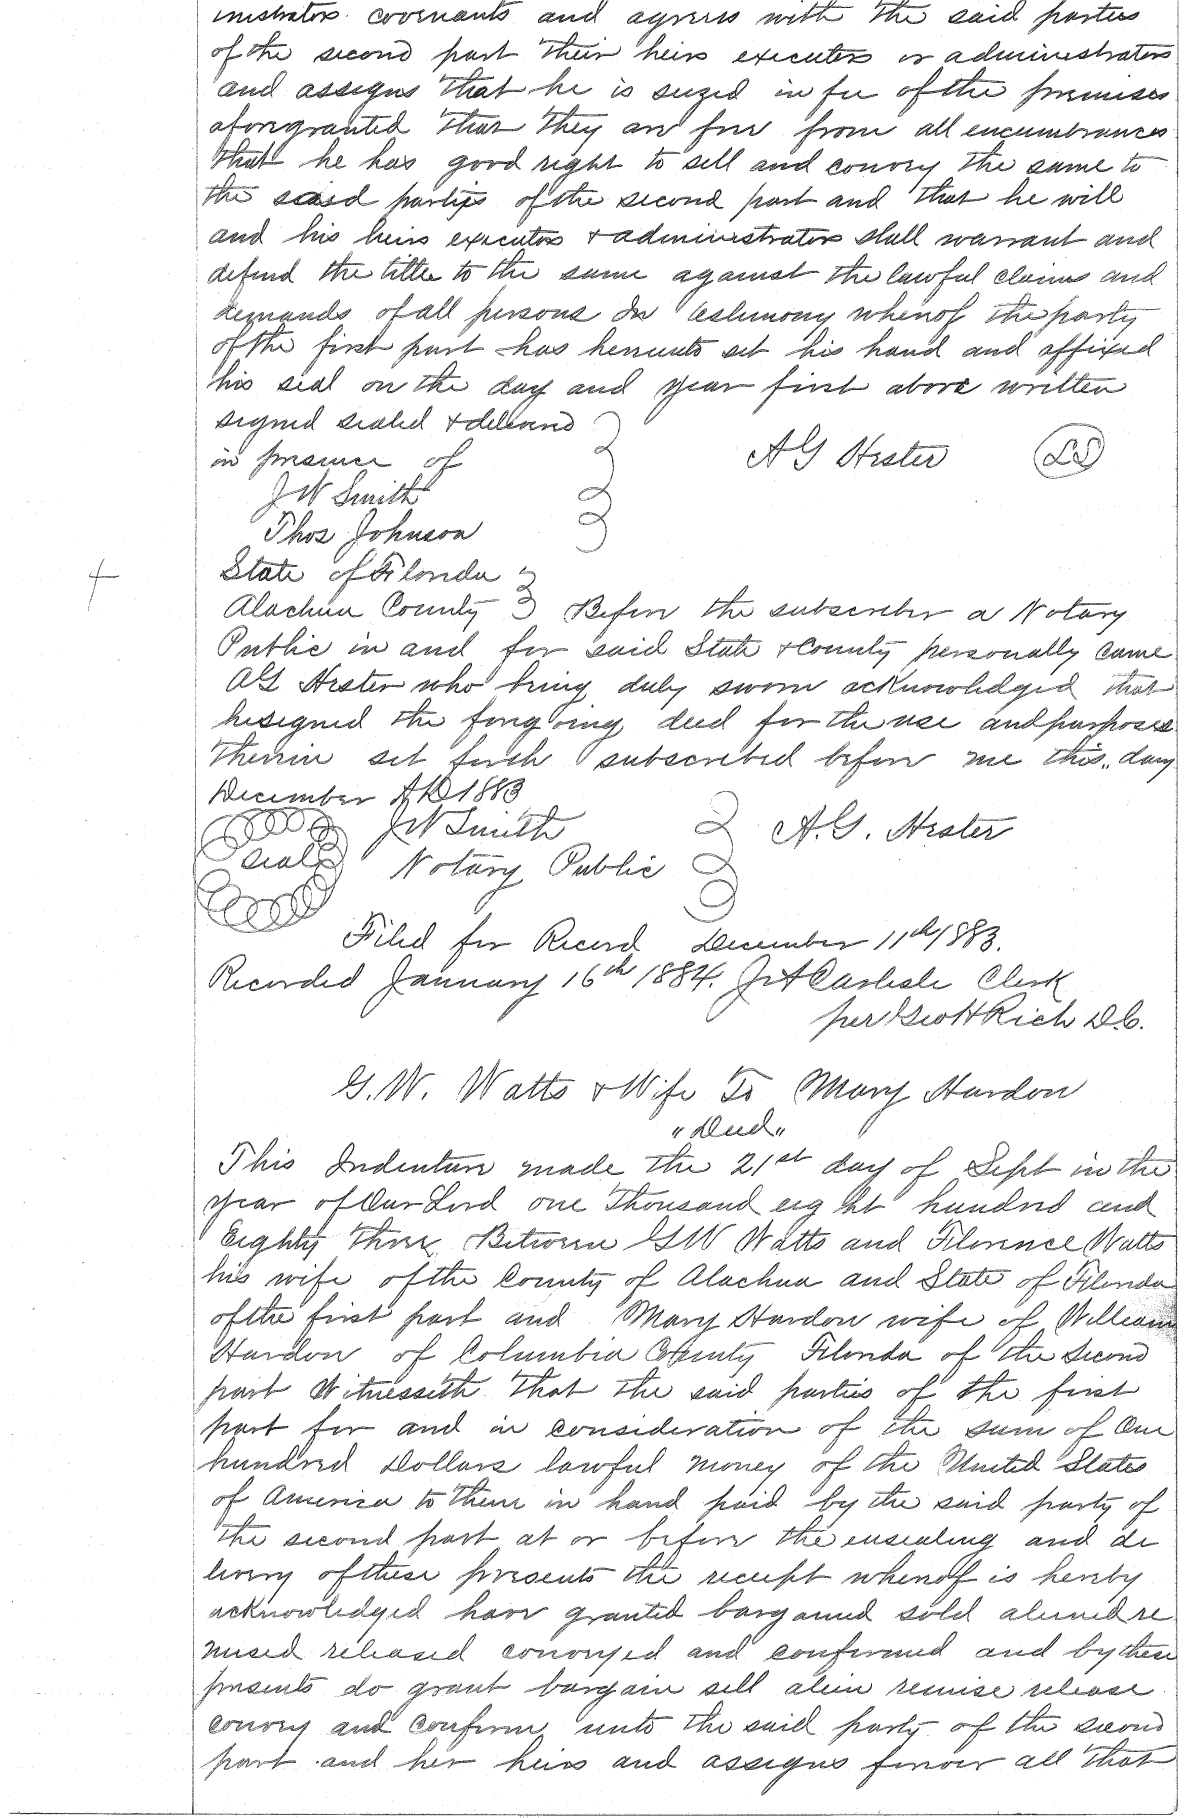 inistrators covenants and agrees with the said parties
of the second part their heirs executors or administrators
and assigns that he is seized in fee of the premises
aforegranted that they are free from all encumbrances
that he has good right to sell and convey the same to
the said parties of the second part and that he will
and his heirs executors & administrators shall warrant and
defend the title to the same against the lawful claims and
demands of all persons In testimony whereof the party
of the first part has hereunto set his hand and affixed
his seal on the day and year first above written
signed sealed & delivered
in presence of
A G Hester LS
J W Smith
Thos Johnson
State of Florida
Alachua County Before the subscriber a Notary
Public in and for said State & County personally came
A G Hester who being duly sworn acknowledged that
he signed the foregoing deed for the use and purposes
therein set forth subscribed before me this " day
December A D 1883
J W Smith A. G. Hester
seal Notary Public
Filed for Record December 11th 1883.
Recorded January 16th 1884. J A Carlisle Clerk
per Geo H Rich D.C.
G. W. Watts & Wife To Mary Hardon
"Deed"
This Indenture made the 21st day of Sept in the
year of Our Lord one Thousand eight hundred and
Eighty three Between G W Watts and Florence Watts
his wife of the County of Alachua and State of Florida
of the first part and Mary Hardon wife of William
Hardon of Columbia County Florida of the Second
part Witnesseth That the said parties of the first
part for and in consideration of the sum of One
hundred Dollars lawful money of the United States
of America to them in hand paid by the said party of
the second part at or before the ensealing and de
livery of these presents the receipt whereof is hereby
acknowledged have granted bargained sold aliened re
mised released conveyed and confirmed and by these
presents do grant bargain sell alien remise release
convey and confirm unto the said party of the second
part and her heirs and assigns forever all that